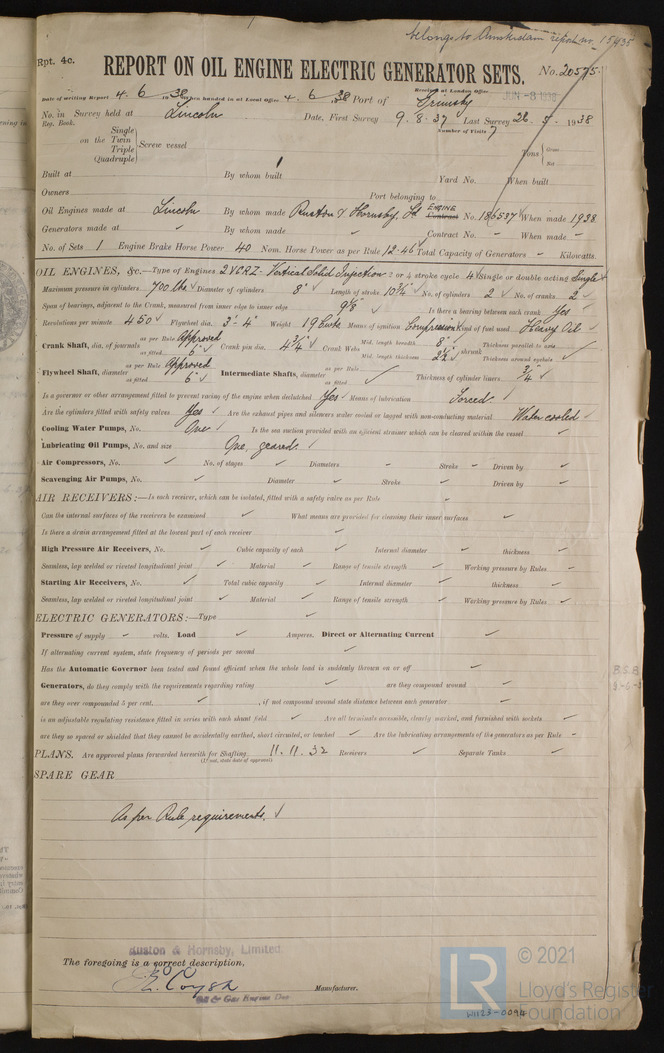 belongs to Amsterdam report no. 15435
Rpt. 4c.
REPORT ON OIL ENGINE ELECTRIC GENERATOR SETS.
No. 20575
Received at London Office JUN -8 1938
Date of writing Report 4. 6. 1938 When handed in at Local Office 4. 6. 1938 Port of Grimsby
No. in Reg. Book. Survey held at Lincoln Date, First Survey 9. 8. 37 Last Survey 26. 5. 1938
Number of Visits 7
on the Single Twin Triple Quadruple Screw vessel Tons Gross Net
Built at By whom built Yard No. When built
Owners Port belonging to
Oil Engines made at Lincoln By whom made Ruston & Hornsby, Ld ENGINE Contract No. 186537 When made 1938
Generators made at By whom made Contract No. – When made –
No. of Sets 1 Engine Brake Horse Power 40 Nom. Horse Power as per Rule 12.46 Total Capacity of Generators – Kilowatts.
OIL ENGINES, &c.—Type of Engines 2VCRZ - Vertical Solid Injection 2 or 4 stroke cycle 4 Single or double acting Single
Maximum pressure in cylinders 700 lbs Diameter of cylinders 8" Length of stroke 10¾" No. of cylinders 2 No. of cranks 2
Span of bearings, adjacent to the Crank, measured from inner edge to inner edge 9⅛" Is there a bearing between each crank Yes
Revolutions per minute 450 Flywheel dia. 3'-4" Weight 19 Cwts Means of ignition Compression Kind of fuel used Heavy Oil
Crank Shaft, dia. of journals as per Rule Approved as fitted 6" Crank pin dia. 4¾" Crank Webs Mid. length breadth 8" Mid. length thickness 2½" shrunk Thickness parallel to axis Thickness around eyehole
Flywheel Shaft, diameter as per Rule Approved as fitted 6" Intermediate Shafts, diameter as per Rule as fitted Thickness of cylinder liners ¾"
Is a governor or other arrangement fitted to prevent racing of the engine when declutched Yes Means of lubrication Forced.
Are the cylinders fitted with safety valves Yes Are the exhaust pipes and silencers water cooled or lagged with non-conducting material Water cooled
Cooling Water Pumps, No. One Is the sea suction provided with an efficient strainer which can be cleared within the vessel
Lubricating Oil Pumps, No. and size One, geared.
Air Compressors, No. No. of stages Diameters Stroke Driven by
Scavenging Air Pumps, No. Diameter Stroke Driven by
AIR RECEIVERS:—Is each receiver, which can be isolated, fitted with a safety valve as per Rule
Can the internal surfaces of the receivers be examined What means are provided for cleaning their inner surfaces
Is there a drain arrangement fitted at the lowest part of each receiver
High Pressure Air Receivers, No. Cubic capacity of each Internal diameter thickness
Seamless, lap welded or riveted longitudinal joint Material Range of tensile strength Working pressure by Rules
Starting Air Receivers, No. Total cubic capacity Internal diameter thickness
Seamless, lap welded or riveted longitudinal joint Material Range of tensile strength Working pressure by Rules
ELECTRIC GENERATORS:—Type
Pressure of supply volts. Load Amperes. Direct or Alternating Current
If alternating current system, state frequency of periods per second
Has the Automatic Governor been tested and found efficient when the whole load is suddenly thrown on or off
Generators, do they comply with the requirements regarding rating are they compound wound
are they over compounded 5 per cent. , if not compound wound state distance between each generator
is an adjustable regulating resistance fitted in series with each shunt field Are all terminals accessible, clearly marked, and furnished with sockets
are they so spaced or shielded that they cannot be accidentally earthed, short circuited, or touched Are the lubricating arrangements of the generators as per Rule –
PLANS. Are approved plans forwarded herewith for Shafting 11. 11. 32 Receivers Separate Tanks
(If not, state date of approval)
SPARE GEAR
As per Rule requirements.
Ruston & Hornsby, Limited
The foregoing is a correct description,
Oil & Gas Engine Dep
Manufacturer.
LR
© 2021
Lloyd's Register
Foundation
W1123-0094